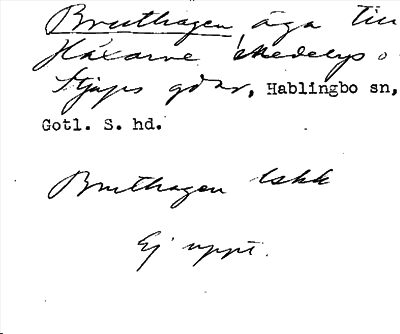 Brusthagen äga till
Häxarve, Skedelys o
Stjups gdar, Hablingbo sn,
Gotl. S. hd.
Brusthagen Eskk
Ej uppt.